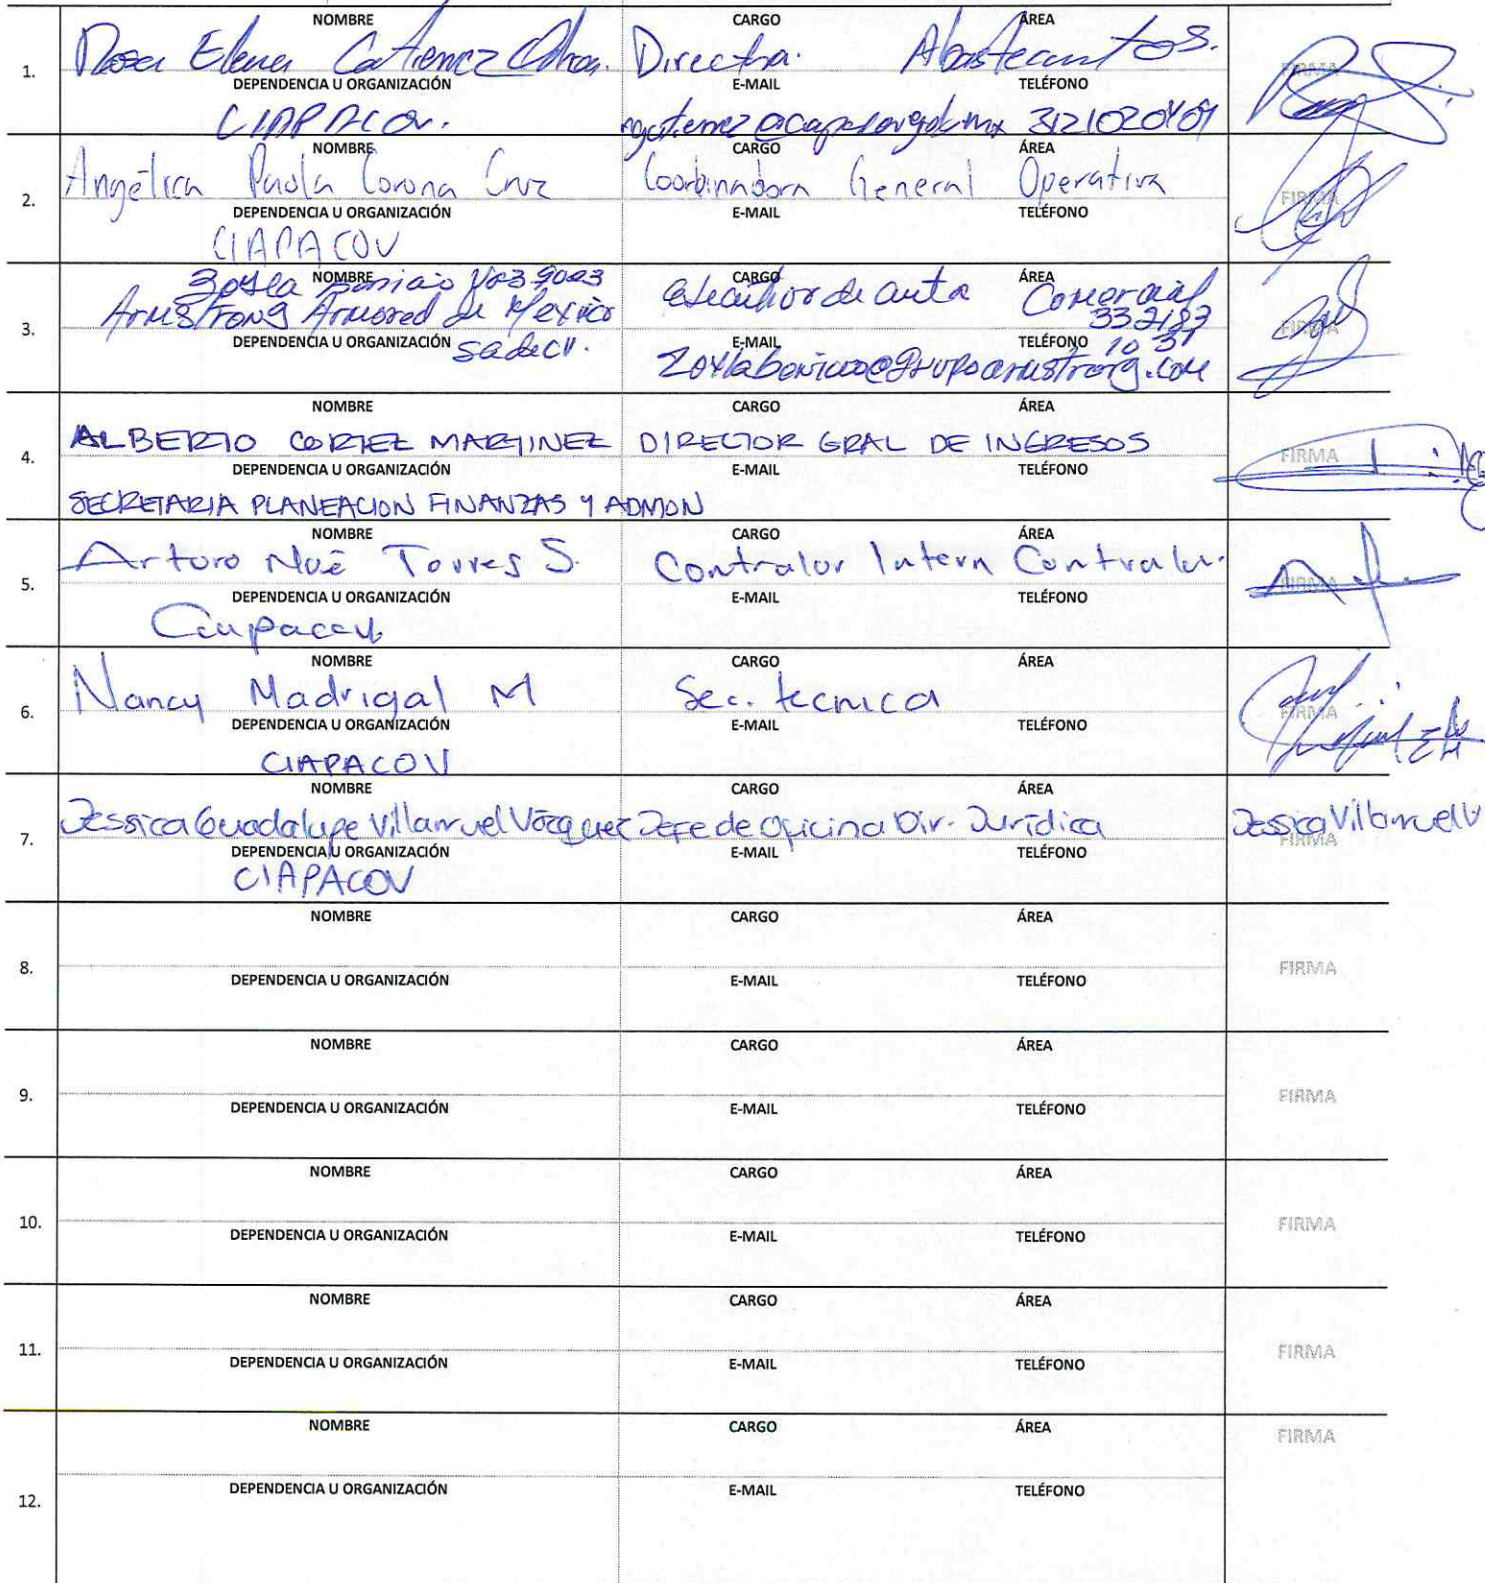 NOMBRE CARGO ÁREA
1. Elena Directora. Abastecimientos. FIRMA
DEPENDENCIA U ORGANIZACIÓN E-MAIL TELÉFONO
CIAPACOV.
NOMBRE CARGO ÁREA
2. Angélica Paola Corona Cruz Coordinadora General Operativa FIRMA
DEPENDENCIA U ORGANIZACIÓN E-MAIL TELÉFONO
CIAPACOV
NOMBRE CARGO ÁREA
Armstrong Armored de Mexico Comercial
3. FIRMA
DEPENDENCIA U ORGANIZACIÓN sadecv. E-MAIL TELÉFONO
NOMBRE CARGO ÁREA
ALBERTO CORTEZ MARTINEZ DIRECTOR GRAL DE INGRESOS
4. FIRMA
DEPENDENCIA U ORGANIZACIÓN E-MAIL TELÉFONO
SECRETARIA PLANEACION FINANZAS Y ADMON
NOMBRE CARGO ÁREA
Arturo Noé Torres S. Contralor Intern Contralor.
5. FIRMA
DEPENDENCIA U ORGANIZACIÓN E-MAIL TELÉFONO
Ciapacov
NOMBRE CARGO ÁREA
Nancy Madrigal M Sec. tecnica
6. FIRMA
DEPENDENCIA U ORGANIZACIÓN E-MAIL TELÉFONO
CIAPACOV
NOMBRE CARGO ÁREA
Jessica Guadalupe Villarruel Vázquez Jefe de oficina Dir. Jurídica Jessica Villarruel V
7. FIRMA
DEPENDENCIA U ORGANIZACIÓN E-MAIL TELÉFONO
CIAPACOV
NOMBRE CARGO ÁREA
8. FIRMA
DEPENDENCIA U ORGANIZACIÓN E-MAIL TELÉFONO
NOMBRE CARGO ÁREA
9. FIRMA
DEPENDENCIA U ORGANIZACIÓN E-MAIL TELÉFONO
NOMBRE CARGO ÁREA
10. FIRMA
DEPENDENCIA U ORGANIZACIÓN E-MAIL TELÉFONO
NOMBRE CARGO ÁREA
11. FIRMA
DEPENDENCIA U ORGANIZACIÓN E-MAIL TELÉFONO
NOMBRE CARGO ÁREA FIRMA
DEPENDENCIA U ORGANIZACIÓN E-MAIL TELÉFONO
12.